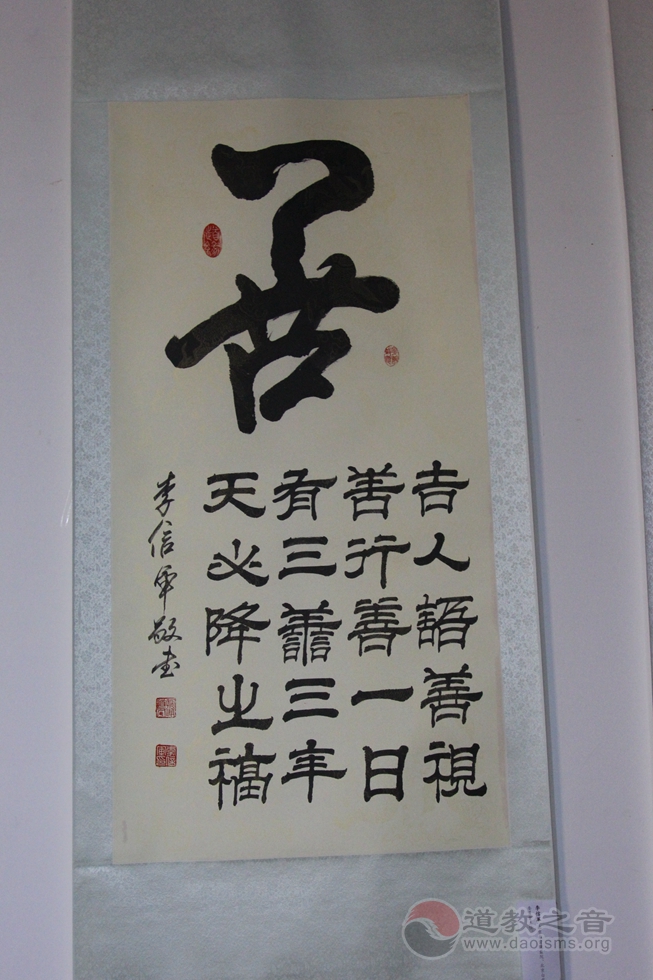 善
吉人語善視
善行善一日
有三善三年
天必降之福
李信軍敬書
道教之音
www.daoisms.org